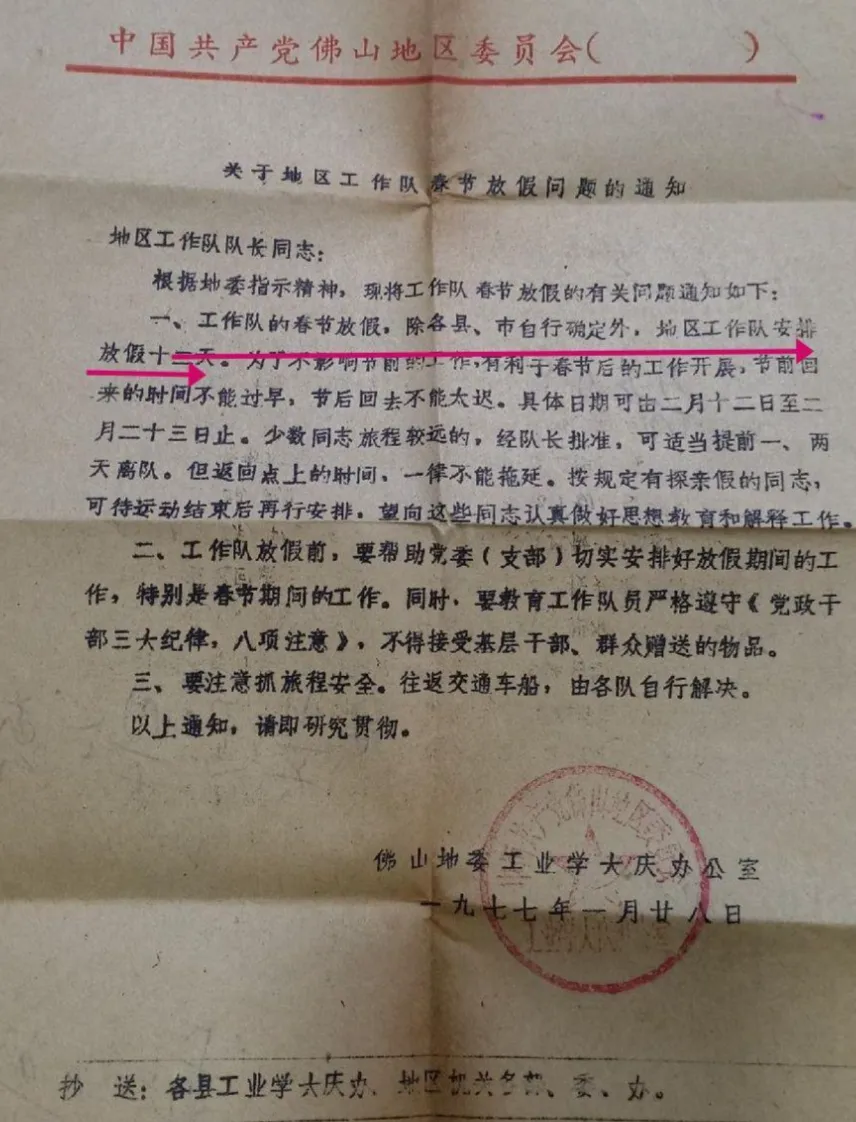 中国共产党佛山地区委员会(　　　)
关于地区工作队春节放假问题的通知
地区工作队队长同志：
根据地委指示精神，现将工作队春节放假的有关问题通知如下：
一、工作队的春节放假，除各县、市自行确定外，地区工作队安排
放假十二天。为了不影响节前的工作，有利于春节后的工作开展，节前回
来的时间不能过早，节后回去不能太迟。具体日期可由二月十二日至二
月二十三日止。少数同志旅程较远的，经队长批准，可适当提前一、两
天离队。但返回点上的时间，一律不能拖延。按规定有探亲假的同志，
可待运动结束后再行安排，望向这些同志认真做好思想教育和解释工作。
二、工作队放假前，要帮助党委（支部）切实安排好放假期间的工
作，特别是春节期间的工作。同时，要教育工作队员严格遵守《党政干
部三大纪律，八项注意》，不得接受基层干部、群众赠送的物品。
三、要注意抓旅程安全。往返交通车船，由各队自行解决。
以上通知，请即研究贯彻。
佛山地委工业学大庆办公室
一九七七年一月廿八日
抄　送：各县工业学大庆办、地区机关各部、委、办。